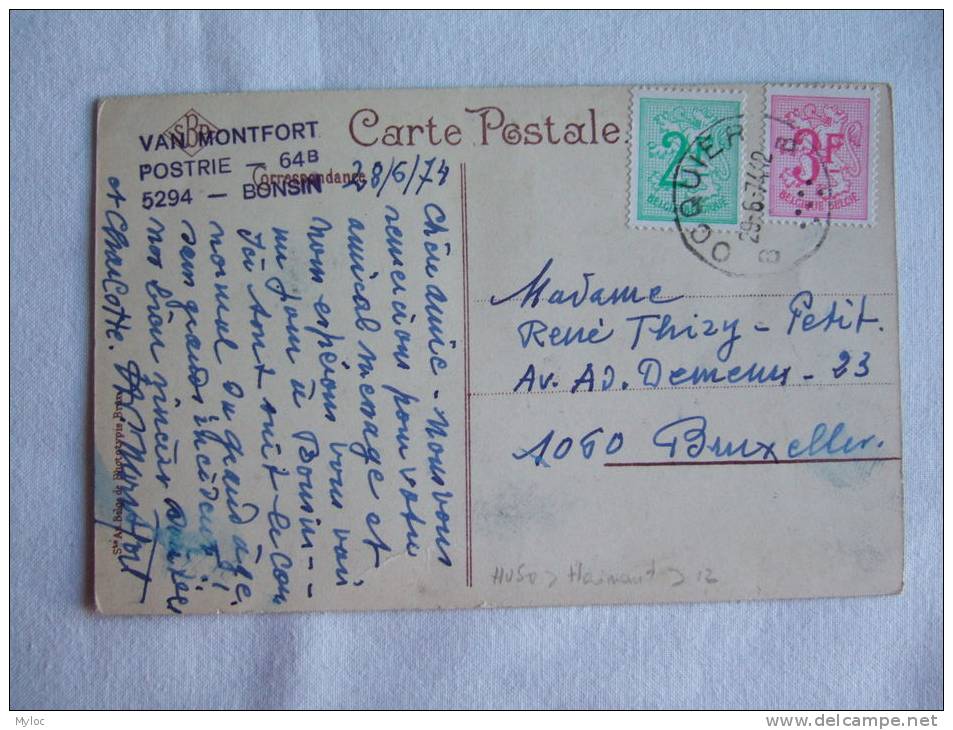 SBP
VAN MONTFORT
POSTRIE — 64B
5294 — BONSIN
Carte Postale
Correspondance
28/6/74
Chère amie - nous vous
remercions pour votre
amical message et
nous espérons vous voir
un jour à Bonsin --
Ici tout suit le cours
normal du grand âge,
sans grandes
nos bien sincères amitiés
et Charlotte.
Ste An. Belge de Phototypie, Brux
2F
BELGIQUE BELGIE
3F
BELGIQUE BELGIE
OCQUIER
29-6-74 12
B
Madame
René Thizy - Petit.
Av. Ad. Demeur - 23
1060 Bruxelles.
Hainaut > 12
Myloc
www.delcampe.net